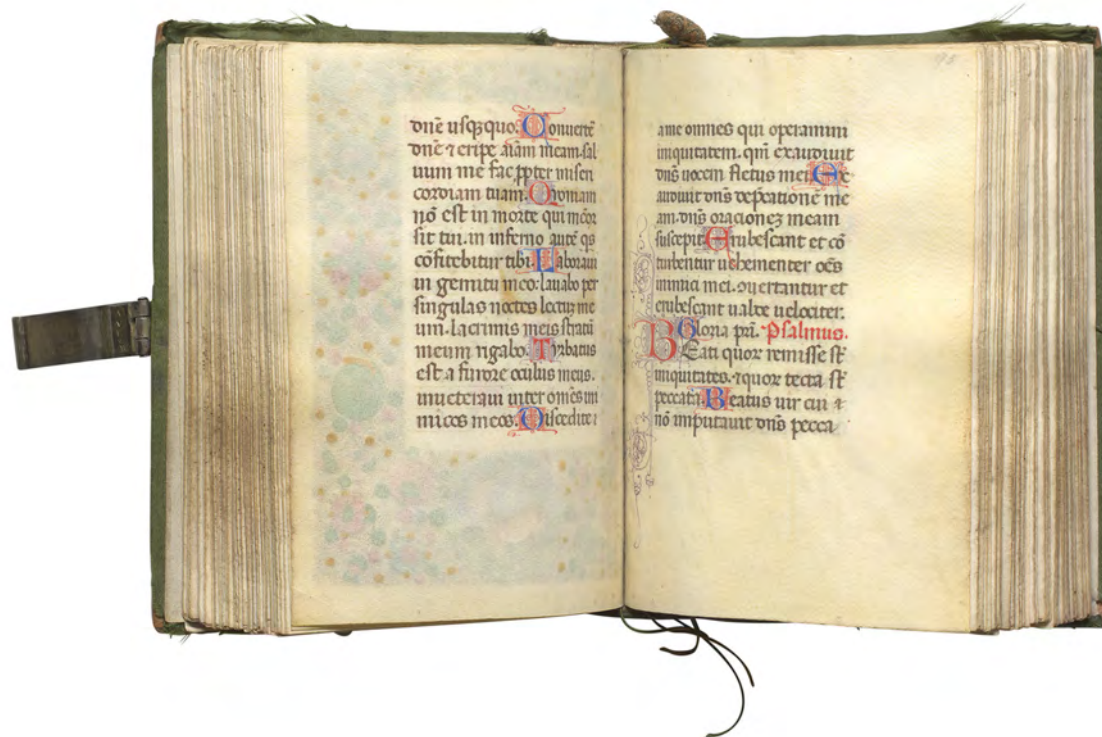 dñe usqꝫ quo. Conuertẽ
dñe ⁊ eripe aĩam meam. sal
uum me fac ꝓpter miseri
cordiam tuam. Quoniam
nõ est in morte qui mẽor
sit tui. in inferno autẽ qs
cõfitebitur tibi. Laboraui
in gemitu meo: lauabo per
singulas noctes lectuꝫ me
um. lacrimis meis stratũ
meum rigabo. Turbatus
est a furore oculus meus.
inueteraui inter oẽs ini
micos meos. Discedite a
a me omnes qui operamini
iniquitatem. qm̃ exaudiuit
dñs uocem fletus mei. Ex
audiuit dñs dep̃cationẽ me
am. dñs oracioneꝫ meam
suscepit. Erubescant et cõ
turbentur uehementer oẽs
inimici mei. ꝯuertantur et
erubescant ualde uelociter.
Gloria pr̃i. Psalmus.
Beati quoꝝ remisse st̃
iniquitates. ⁊ quoꝝ tecta st̃
peccata. Beatus uir cui
nõ imputauit dñs pecca